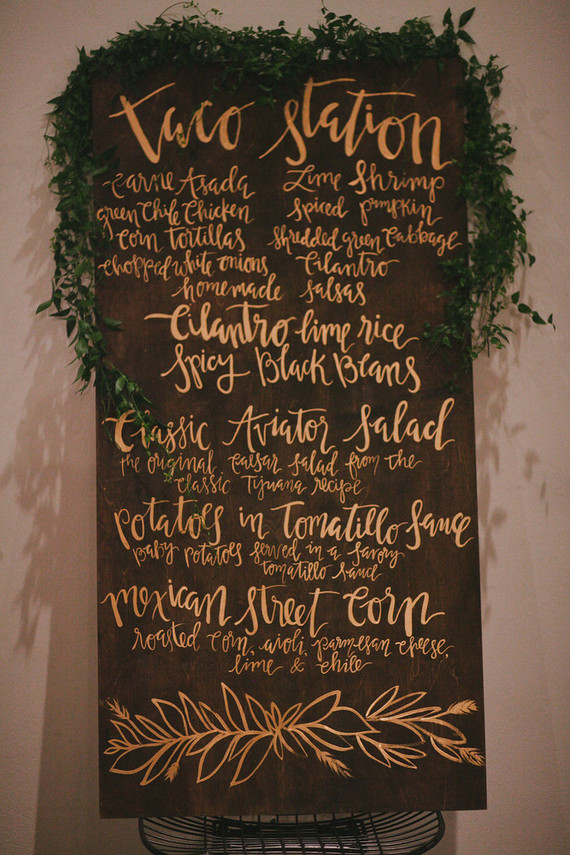 Taco Station
Carne Asada Lime Shrimp
green Chile Chicken Spiced pumpkin
Corn Tortillas shredded green Cabbage
chopped white onions Cilantro
homemade salsas
Cilantro lime rice
Spicy Black Beans
Classic Aviator Salad
the original Caesar salad from the
classic Tijuana recipe
Potatoes in Tomatillo Sauce
Baby potatoes served in a savory
tomatillo sauce
mexican Street Corn
roasted corn, aioli, parmesan cheese,
lime & chile